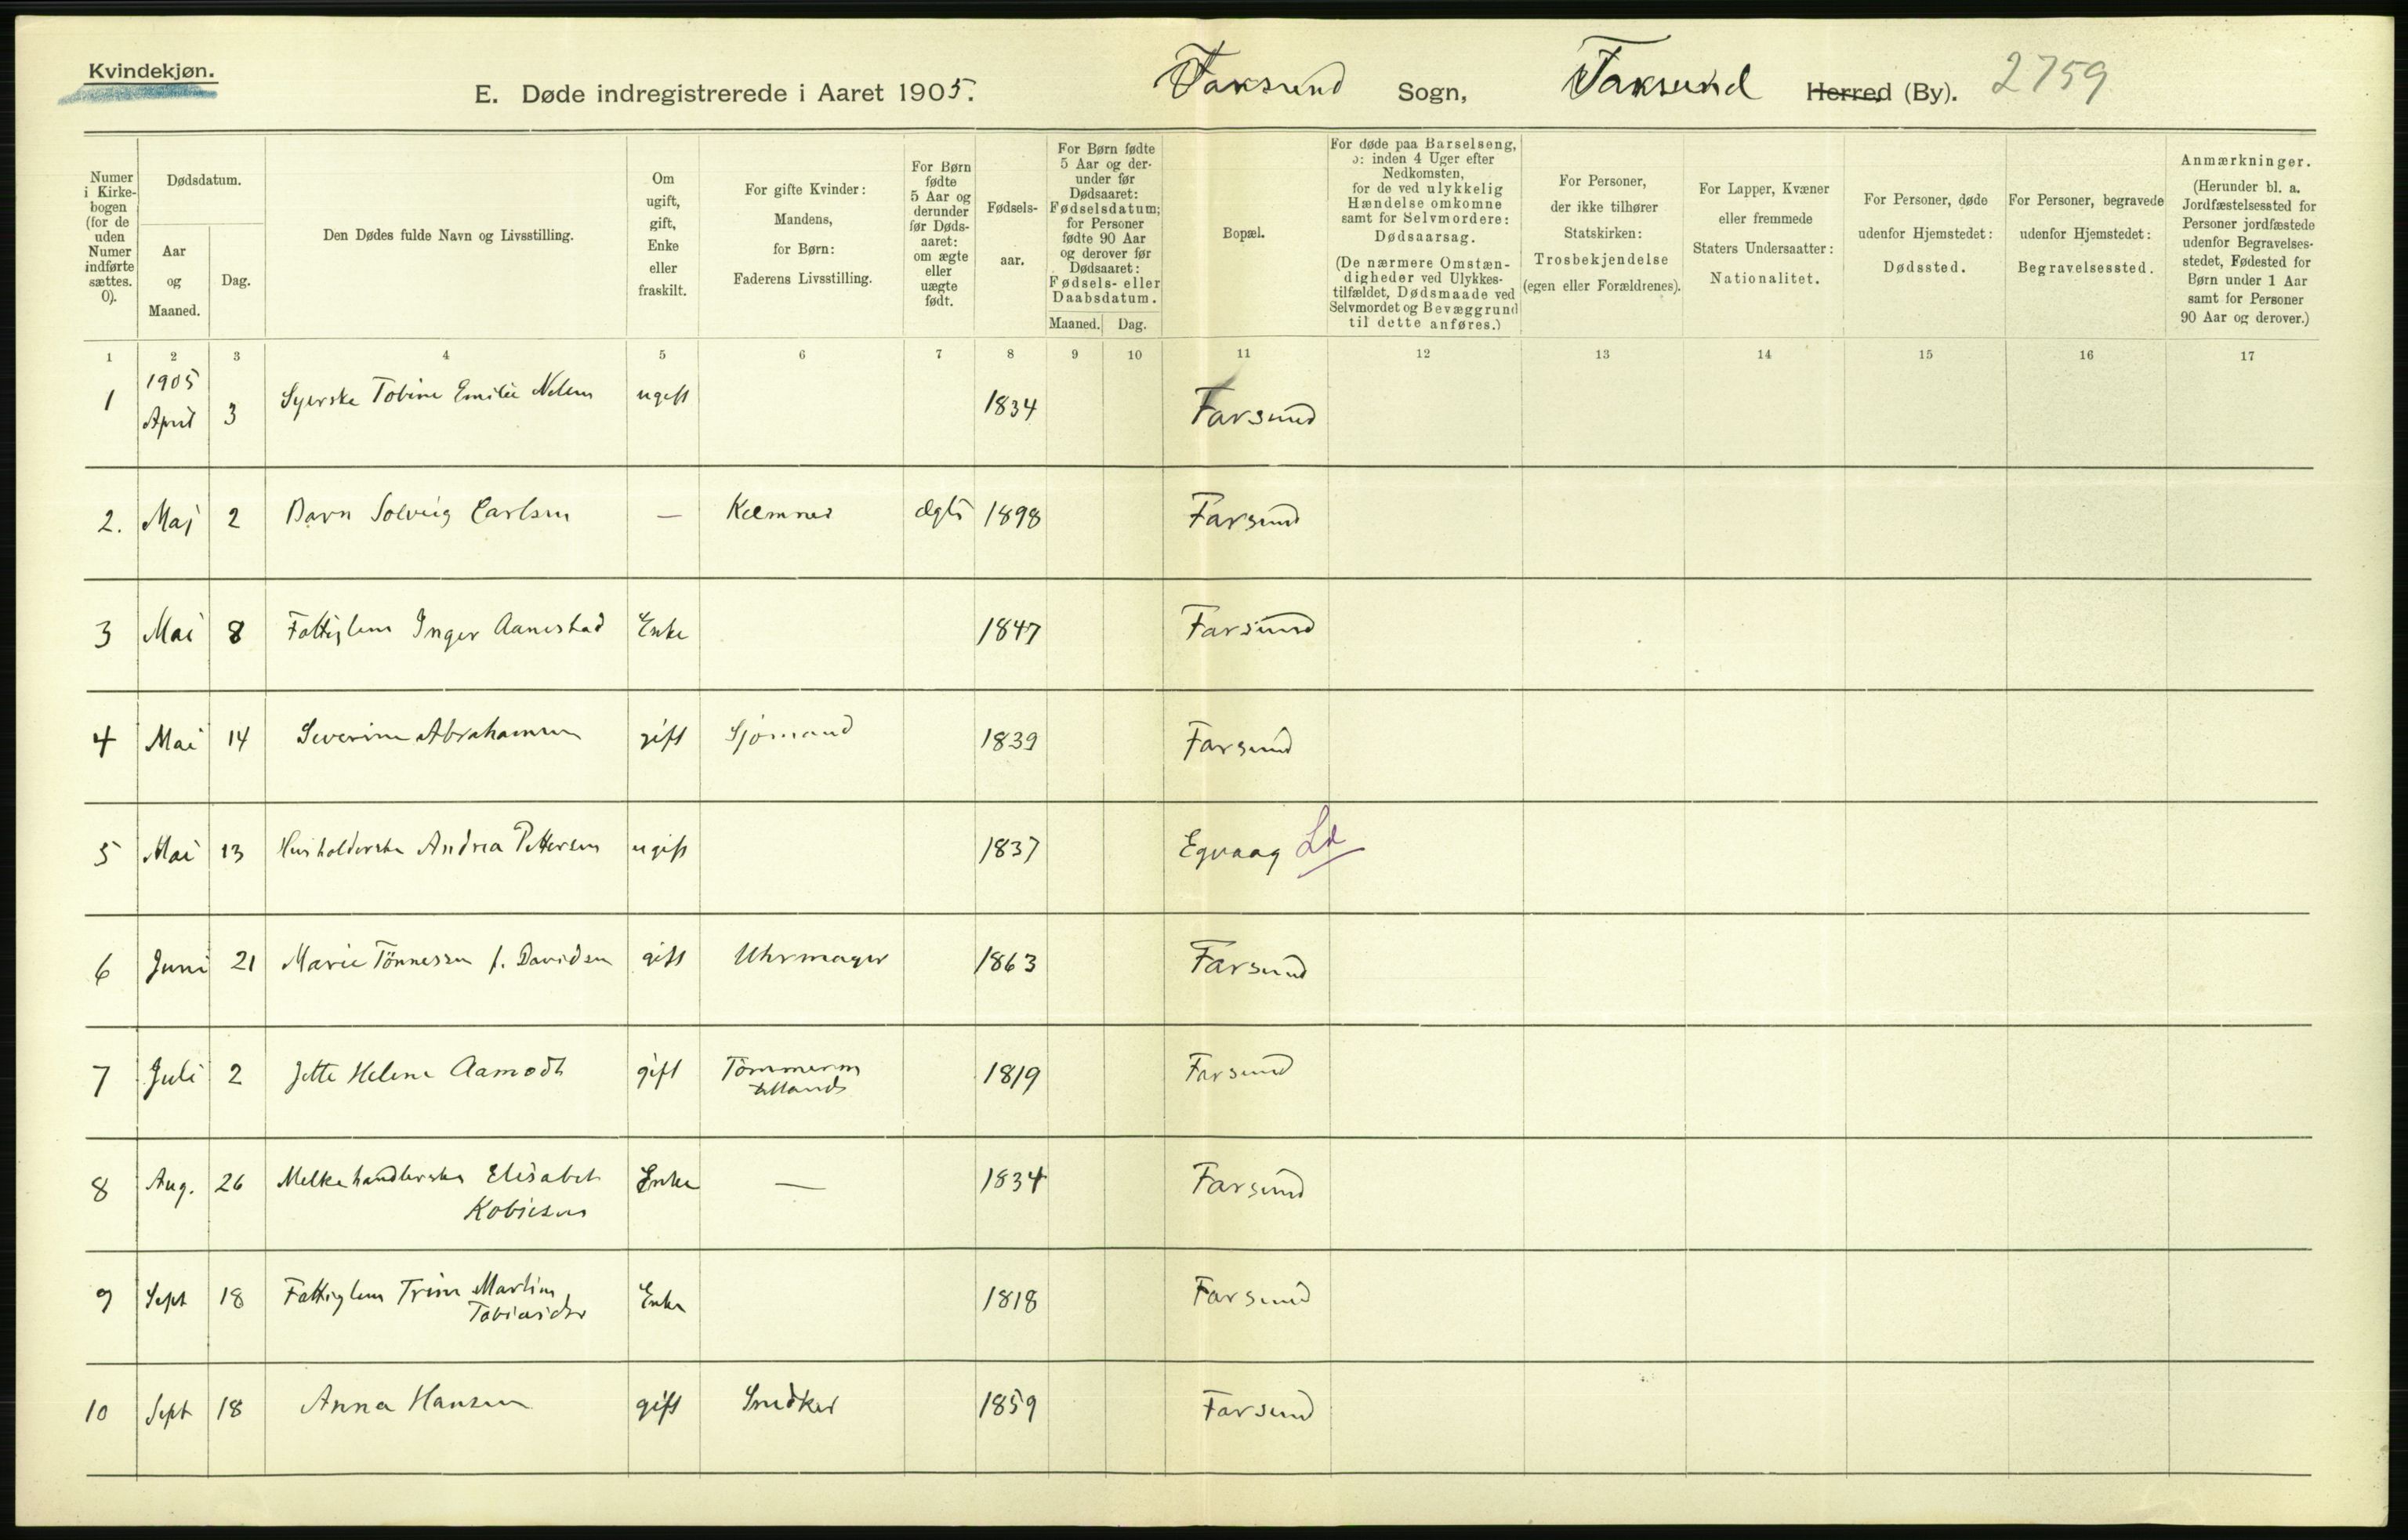 Kvindekjøn.
E. Døde indregistrerede i Aaret 1905. Farsund Sogn, Farsund Herred (By). 2759
Numer i Kirkebogen (for de uden Numer indførte sættes. 0).
Dødsdatum.
Aar og Maaned.
Dag.
Den Dødes fulde Navn og Livsstilling.
Om ugift, gift, Enke eller fraskilt.
For gifte Kvinder: Mandens, for Børn: Faderens Livsstilling.
For Børn fødte 5 Aar og derunder før Dødsaaret: om ægte eller uægte født.
Fødselsaar.
For Børn fødte 5 Aar og derunder før Dødsaaret: Fødselsdatum; for Personer fødte 90 Aar og derover før Dødsaaret: Fødsels- eller Daabsdatum.
Maaned. Dag.
Bopæl.
For døde paa Barselseng, ɔ: inden 4 Uger efter Nedkomsten, for de ved ulykkelig Hændelse omkomne samt for Selvmordere: Dødsaarsag.
(De nærmere Omstændigheder ved Ulykkestilfældet, Dødsmaade ved Selvmordet og Bevæggrund til dette anføres.)
For Personer, der ikke tilhører Statskirken: Trosbekjendelse (egen eller Forældrenes).
For Lapper, Kvæner eller fremmede Staters Undersaatter: Nationalitet.
For Personer, døde udenfor Hjemstedet: Dødssted.
For Personer, begravede udenfor Hjemstedet: Begravelsessted.
Anmærkninger.
(Herunder bl. a. Jordfæstelsessted for Personer jordfæstede udenfor Begravelsesstedet, Fødested for Børn under 1 Aar samt for Personer 90 Aar og derover.)
1 2 3 4 5 6 7 8 9 10 11 12 13 14 15 16 17
1 1905 April 3 Syerske Tobine Emilie Nilsen ugift 1834 Farsund
2. Maj 2 Barn Solveig Carlsen — Kæmner ægte 1898 Farsund
3 Mai 8 Fattiglem Inger Aanestad Enke 1847 Farsund
4 Mai 14 Severine Abrahamsen gift Sjømand 1839 Farsund
5 Mai 13 Husholderske Andrea Pettersen ugift 1837 Egvaag Ld
6 Juni 21 Marie Tönnessen f. Davidsen gift Uhrmager 1863 Farsund
7 Juli 2 Jette Helene Aamodt gift Tömmermand 1819 Farsund
8 Aug. 26 Melkehandlerske Elisabet Enke — 1834 Farsund
9 Sept 18 Fattiglem Trine Martine Tobiasder Enke 1818 Farsund
10 Sept 18 Anna Hansen gift Snedker 1859 Farsund